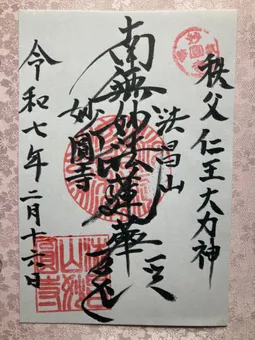 秩父 仁王大力神
法昌山
南無妙法蓮華経
妙圓寺
令和七年二月十六日